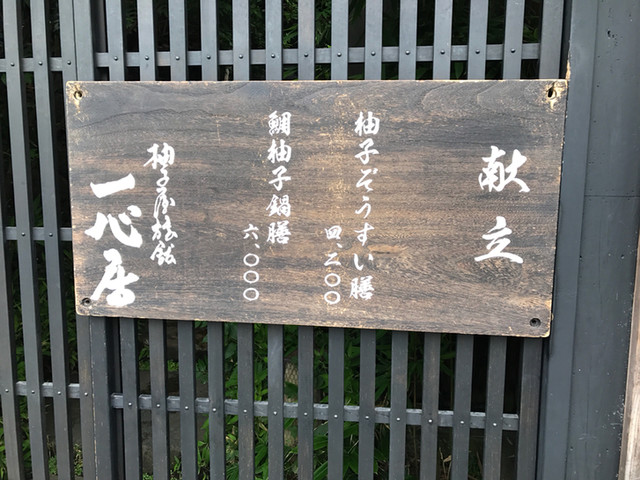 献立
柚子ぞうすい膳
四、二〇〇
鯛柚子鍋膳
六、〇〇〇
柚子屋旅館
一心居